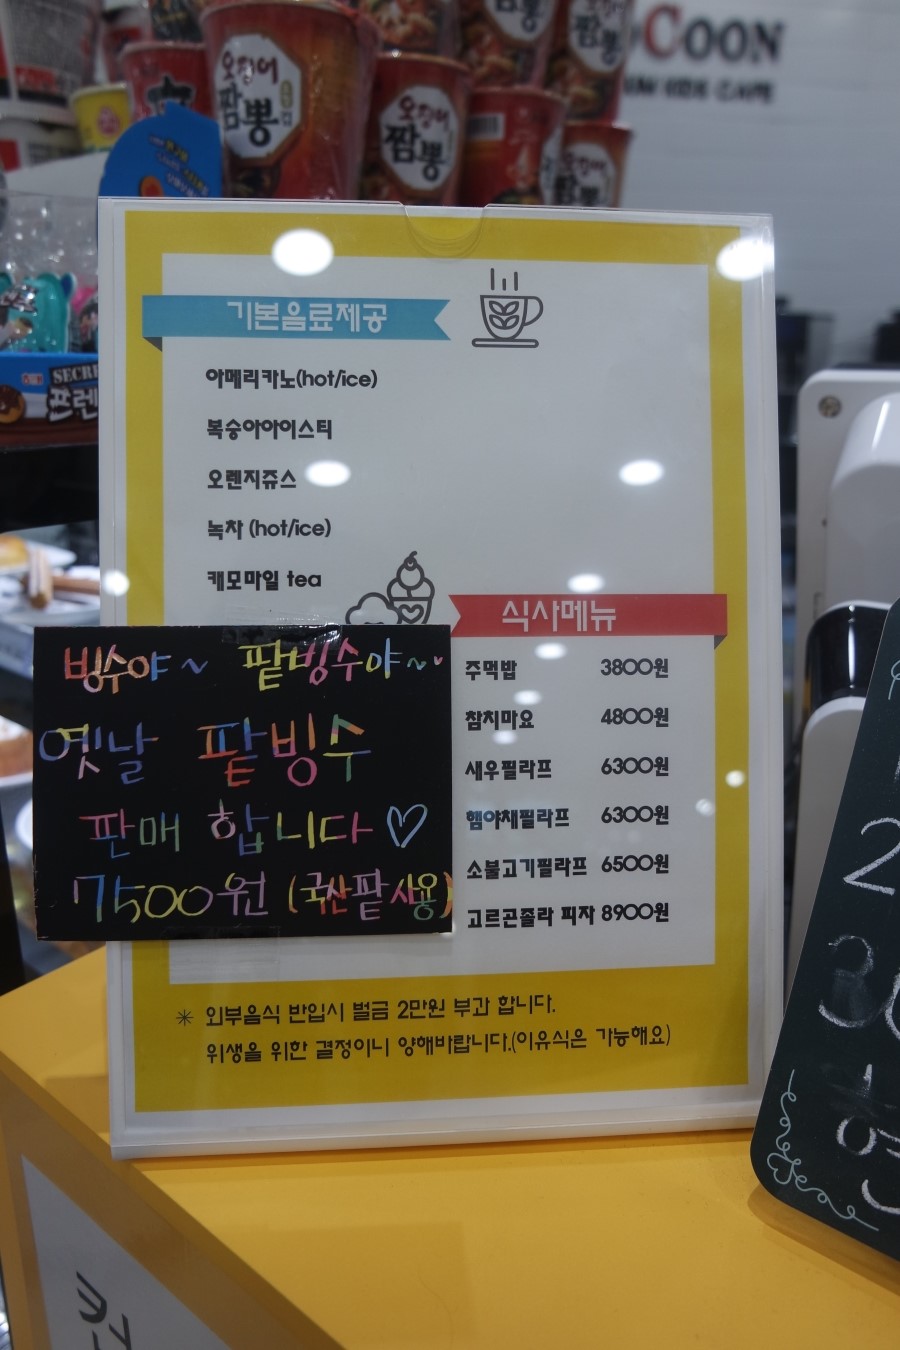 COON
오징어
짬뽕
오징어
짬뽕
짬뽕
기본음료제공
아메리카노(hot/ice)
복숭아아이스티
오렌지쥬스
녹차 (hot/ice)
캐모마일 tea
식사메뉴
주먹밥 3800원
참치마요 4800원
새우필라프 6300원
햄야채필라프 6300원
소불고기필라프 6500원
고르곤졸라 피자 8900원
빙수야~ 팥빙수야~
옛날 팥빙수
판매 합니다♡
7500원 (국산팥 사용)
✳ 외부음식 반입시 벌금 2만원 부과 합니다.
위생을 위한 결정이니 양해바랍니다.(이유식은 가능해요)